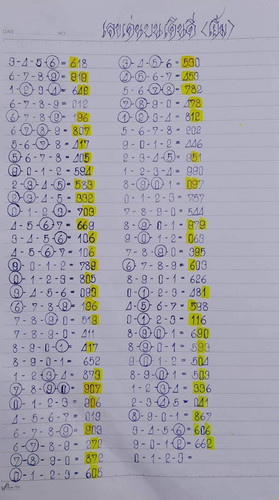 3-4-5-6 = 618
6-7-8-9 = 919
1-2-3-4 = 649
6-7-8-9 = 012
6-7-8-9 = 196
6-7-8-9 = 807
5-6-7-8 = 417
5-6-7-8 = 405
9-0-1-2 = 594
2-3-4-5 = 583
2-3-4-5 = 332
0-1-2-3 = 703
4-5-6-7 = 669
3-4-5-6 = 106
4-5-6-7 = 106
9-0-1-2 = 789
0-1-2-3 = 805
3-4-5-6 = 093
6-7-8-9 = 196
7-8-9-0 = 519
7-8-9-0 = 411
8-9-0-1 = 417
8-9-0-1 = 652
1-2-3-4 = 879
7-8-9-0 = 907
0-1-2-3 = 806
4-5-6-7 = 019
6-7-8-9 = 903
6-7-8-9 = 272
7-8-9-0 = 872
0-1-2-3 = 605
3-4-5-6 = 530
4-5-6-7 = 453
5-6-7-8 = 782
7-8-9-0 = 478
1-2-3-4 = 812
5-6-7-8 = 202
9-0-1-2 = 446
2-3-4-5 = 951
1-2-3-4 = 990
8-9-0-1 = 097
0-1-2-3 = 757
7-8-9-0 = 544
8-9-0-1 = 979
9-0-1-2 = 063
7-8-9-0 = 395
6-7-8-9 = 603
8-9-0-1 = 626
0-1-2-3 = 481
4-5-6-7 = 598
0-1-2-3 = 116
8-9-0-1 = 690
8-9-0-1 = 593
9-0-1-2 = 504
8-9-0-1 = 503
1-2-3-4 = 936
2-3-4-5 = 041
8-9-0-1 = 867
3-4-5-6 = 606
9-0-1-2 = 662
0-1-2-3 =